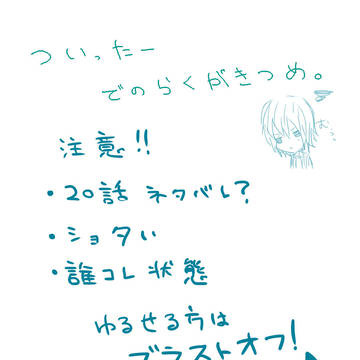 ついったー
でのらくがきつめ。
むっ
注意!!
・20話 ネタバレ?
・ショタい
・誰コレ状態
ゆるせる方は
ブラストオフ!